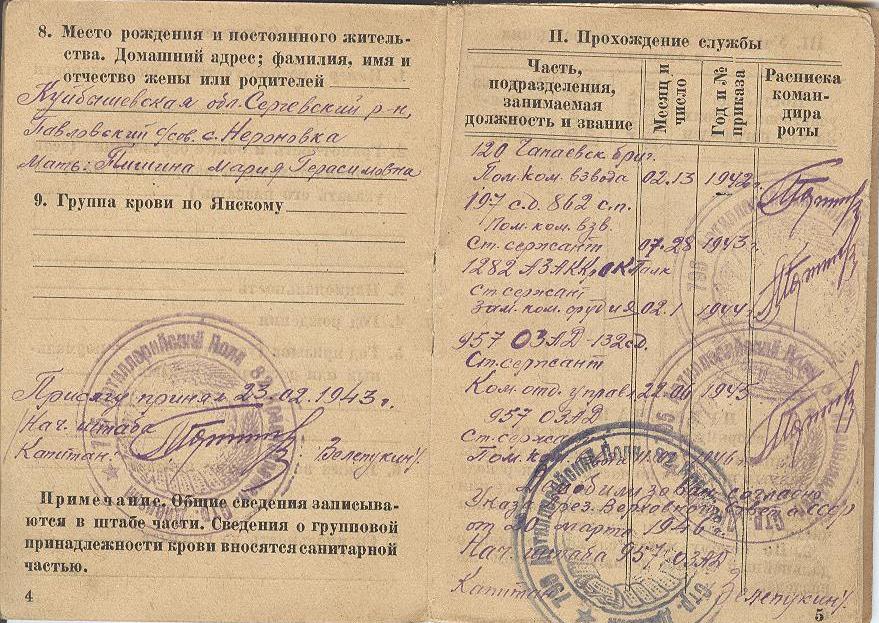 8. Место рождения и постоянного житель-
ства. Домашний адрес; фамилия, имя и
отчество жены или родителей
Куйбышевская обл. Сергевский р-н,
Павловский с/сов. с. Нероновка
Мать: Пишина Мария Герасимовна
9. Группа крови по Янскому
Присягу принял 23.02.1943 г.
Нач. штаба
Капитан: Зелепукин
Примечание. Общие сведения записыва-
ются в штабе части. Сведения о групповой
принадлежности крови вносятся санитарной
частью.
4
П. Прохождение службы
Часть, подразделения, занимаемая должность и звание
Месяц и число
Год и № приказа
Расписка коман-дира роты
120 Чапаевск бриг.
Пом. ком. взвода 02.13 1942 г.
197 с.д. 862 с.п.
Пом. ком. взв.
Ст. сержант 07.28 1943 г
1282
Ст. сержант
Зам. ком. орудия 02.1 1944 г
957 ОЗАД - 132 с.д.
Ст. сержант
Ком. отд. управл 22.06 1945
957 ОЗАД
Ст. сержант
Пом. 1946 г.
Демобилизован согласно
Указ. През. Верховного Совета СССР
от 20 марта 1946 г.
Нач. штаба 957 ОЗАД
Капитан Зелепукин
5